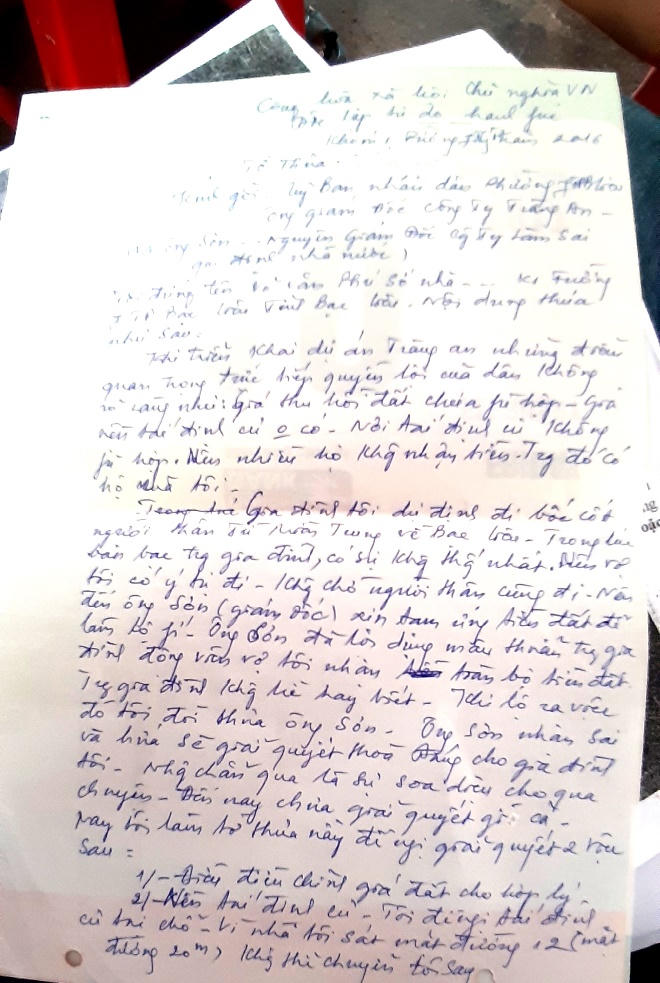 Cộng hòa xã hội Chủ nghĩa VN
Độc lập tự do hanh fúc
Khóm 1, 2016
Tờ Thưa
Kính gởi Uỷ Ban nhân dân Phường
Ông giám Đốc Công Ty Tràng An -
ông Sơn... Nguyên Giám Đốc Cty làm Sai
qui định nhà nước)
Tôi đứng tên Võ văn Phú Số nhà --- K1 Fường
TP Bạc liêu Tỉnh Bạc liêu. Nội dung thưa
như Sau:
Khi triển Khai dự án Tràng an nhưng điều
quan trọng trực tiếp quyền lợi của dân Không
rõ ràng như: giá thu hồi đất chưa fù hợp - Giá
nền tái định cư o có - Nơi tái định cư Không
fù hợp. Nên nhiều hộ Khg nhận tiền. Trg đó có
hộ nhà tôi -
Gia đình tôi dự định đi bốc cốt
người thân Từ Miền Trung về Bạc liêu - Trong lúc
bàn bạc trg gia đình, có sự Khg thg nhất. Nên vợ
tôi cố ý tự đi - Khg chờ người thân cùng đi - Nên
đến ông Sơn (giám đốc) xin tạm ứng tiền đất để
làm lộ fí - Ông Sơn đã lợi dụng mâu thuẫn trg gia
đình động viên vợ tôi nhận toàn bộ tiền đất
Trg gia đình Khg hề hay biết - Khi lộ ra việc
đó tôi đòi thưa ông Sơn - Ông Sơn nhận Sai
và hứa sẽ giải quyết thoả Đáng cho gia đình
tôi - Nhg chẳn qua là sự soa diệu cho qua
chuyện - Đến nay chưa giải quyết gì cả -
Nay tôi làm tờ thưa này đề ngị giải quyết 2 việc
Sau:
1/- Điều chỉnh giá đất cho hợp lý
2/- Nền tái định cư - Tôi đề ngị tái định
cư tại chổ - Vì nhà tôi sát mặt đường 12 (mặt
đường 20m) Khg thể chuyển tôi Sag